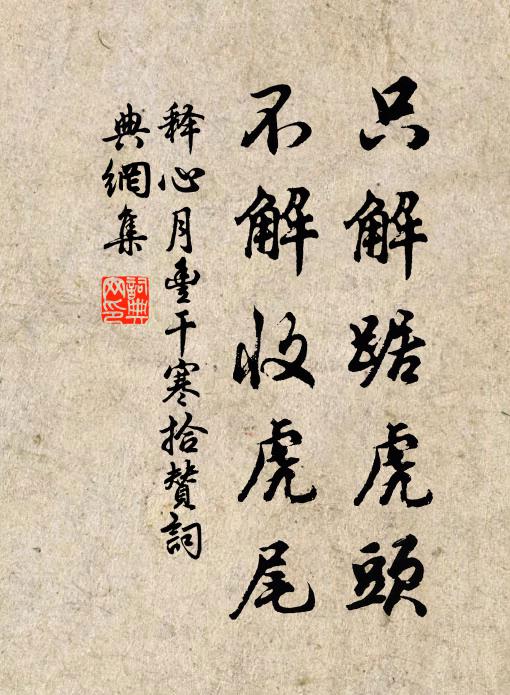 只解踞虎頭
不解收虎尾
释心月豊干寒拾贊詞
典網集
詞典网印